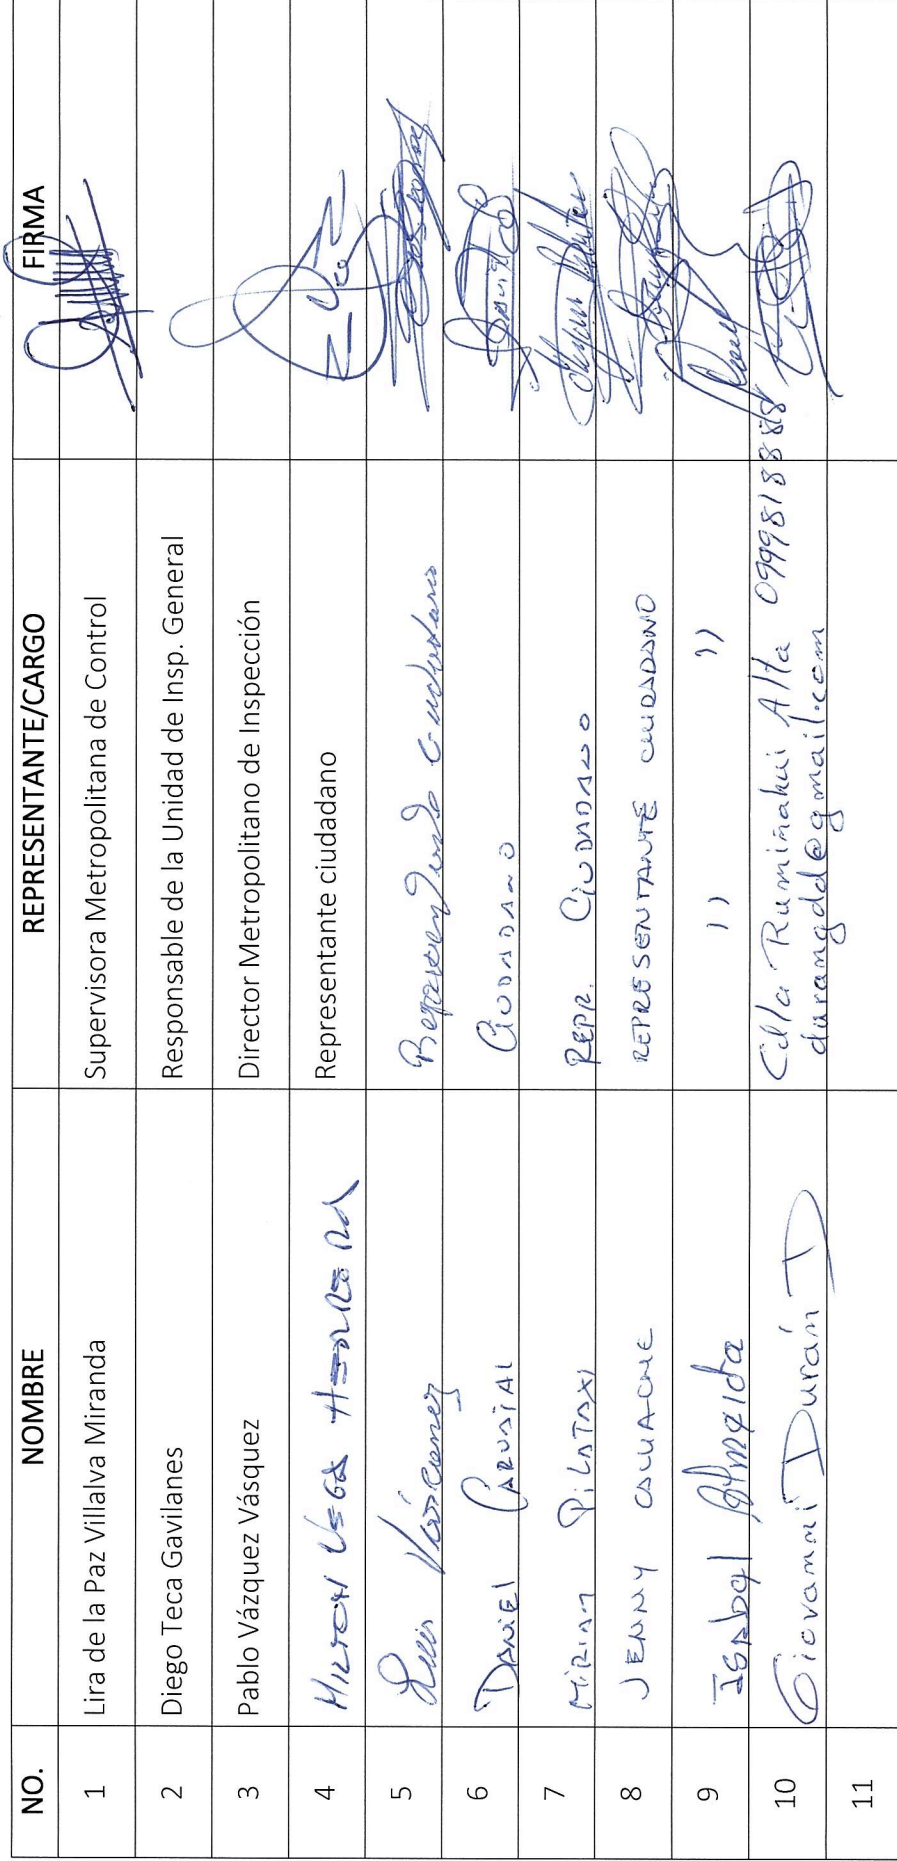 NO. NOMBRE REPRESENTANTE/CARGO FIRMA
1 Lira de la Paz Villalva Miranda Supervisora Metropolitana de Control
2 Diego Teca Gavilanes Responsable de la Unidad de Insp. General
3 Pablo Vázquez Vásquez Director Metropolitano de Inspección
4 MILTON VEGA HERRERA Representante ciudadano
5 Luis Váscones
6 DANIEL CARVAJAL CIUDADANO
7 MIRIAM PILATAXI REPR. CIUDADANO
8 JENNY COLLAHUAZO REPRESENTANTE CIUDADANO
9 ISABEL Almeida " "
10 Giovanni Durán T Cdla Rumiñahui Alta 0999818888
durangdd@gmail.com
11